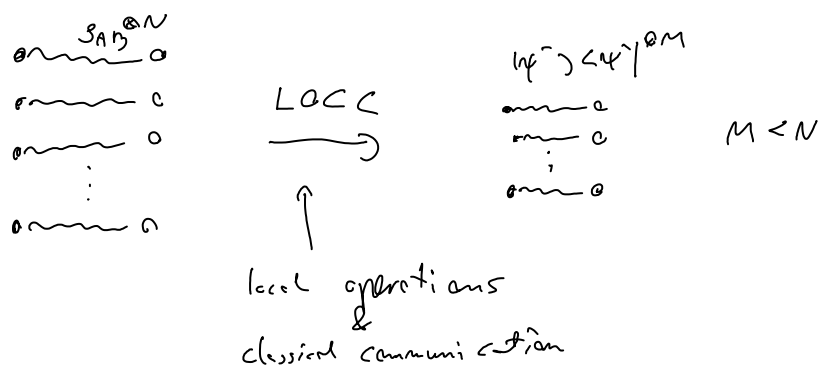 ρ_AB^⊗N
LOCC
|ψ⁻⟩⟨ψ⁻|^⊗M
M < N
local operations
&
classical communication